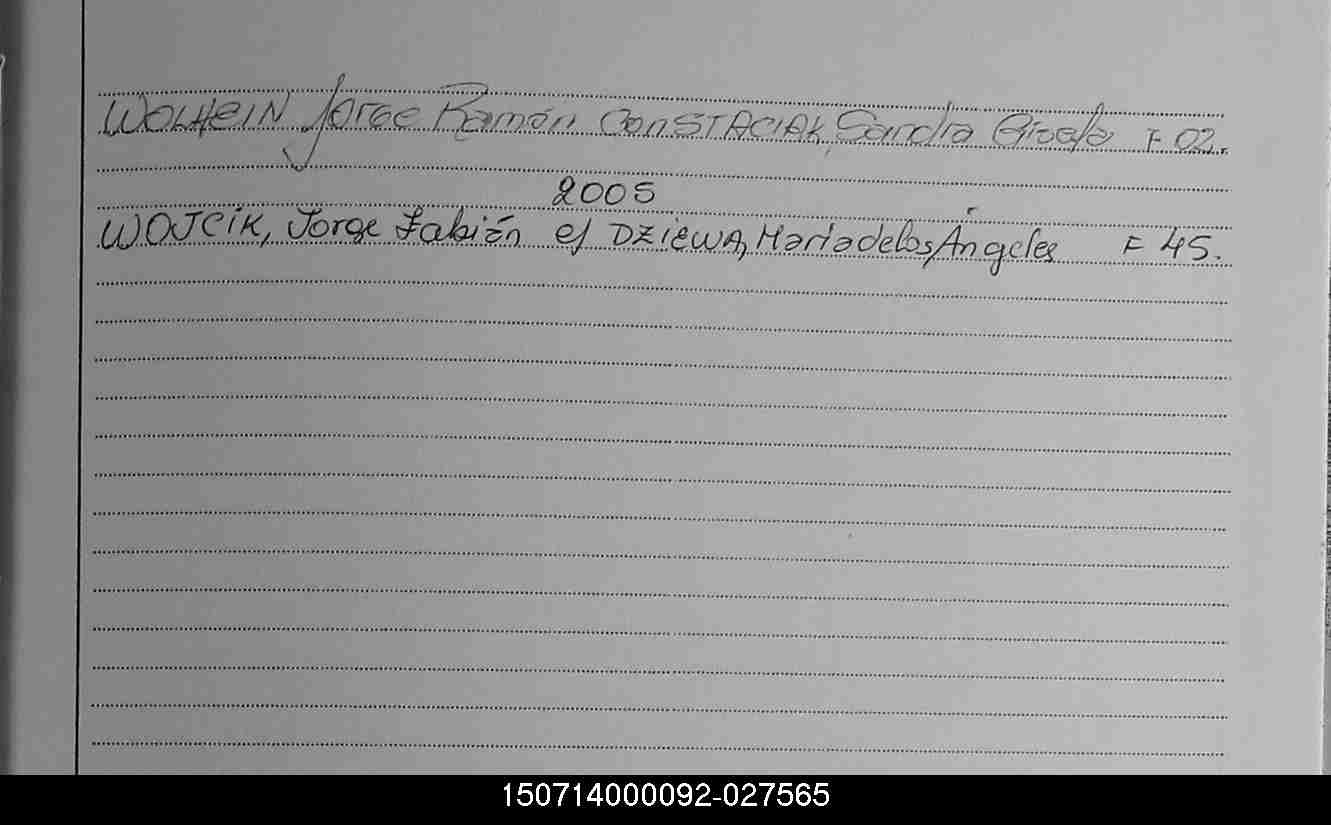 WOLHEIN Jorge Ramón CONSTACIAK, Sandra Gisela F 02.
2005
WOJCIK, Jorge Fabián c/ DZIEWA, María de los Ángeles F 45.
150714000092-027565